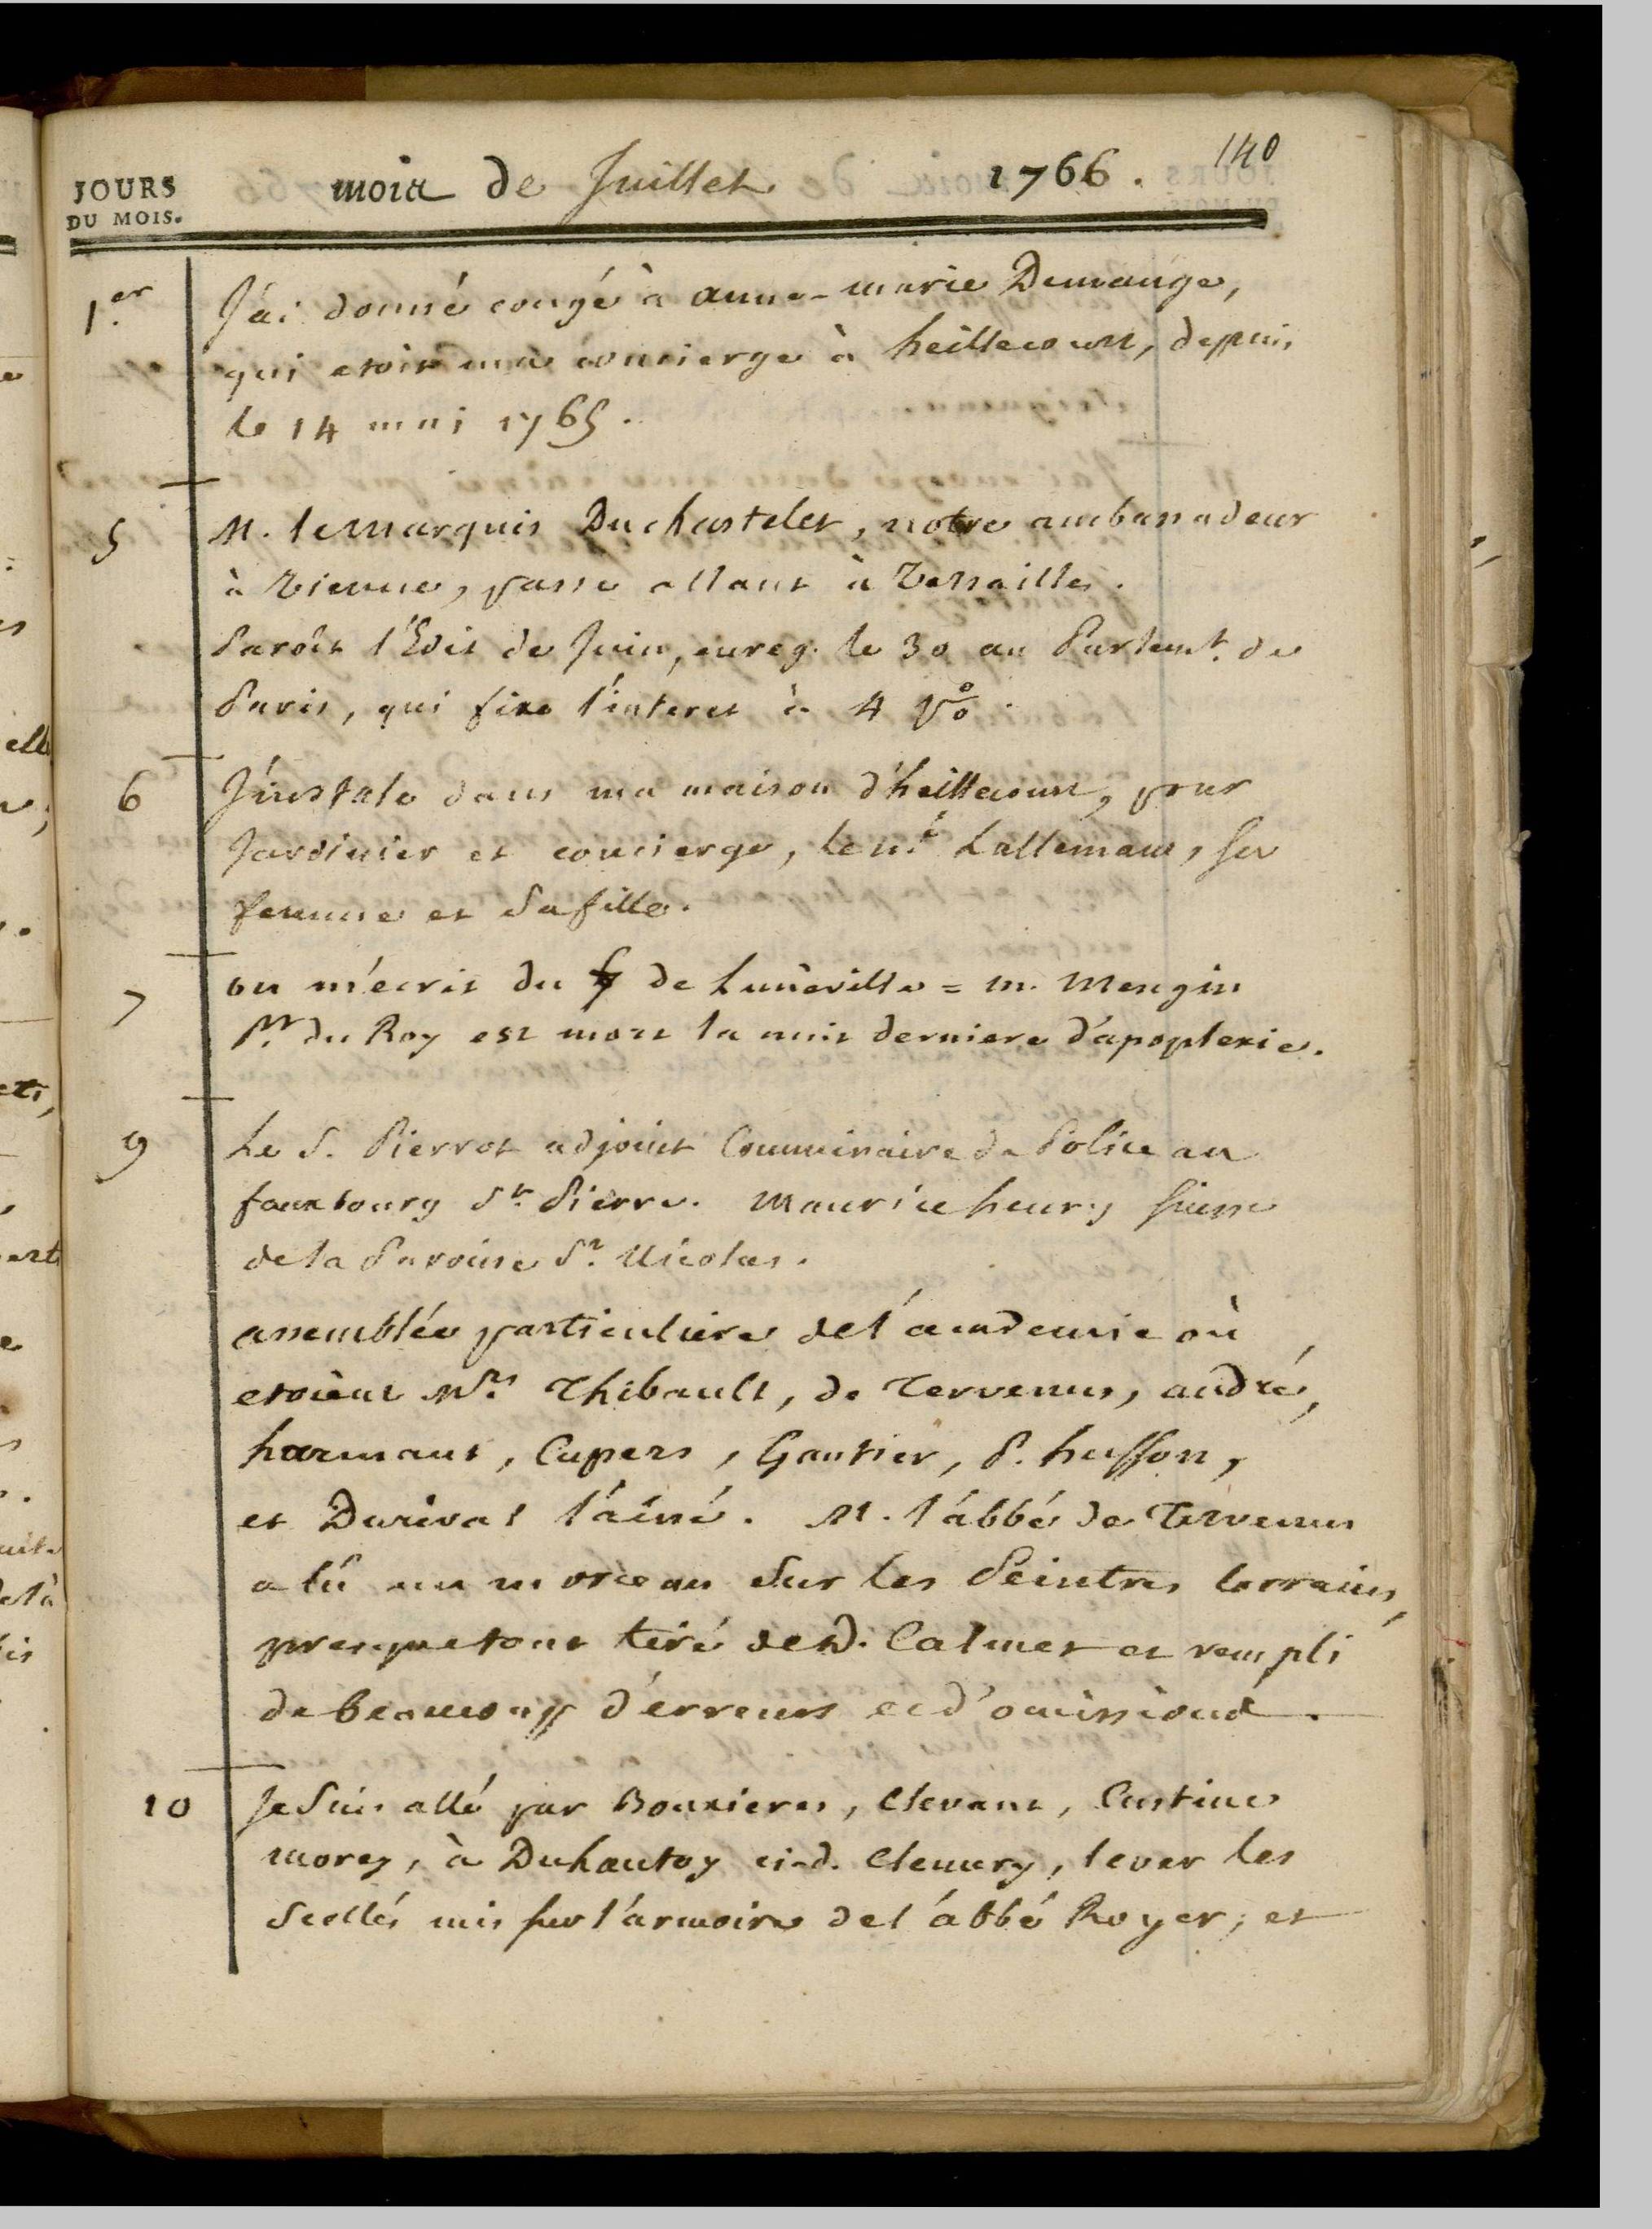 140
JOURS
DU MOIS.
mois de Juillet 1766.
1.er J'ai donné congé à anne-marie Demange,
qui etoit ma concierge à heillecourt, depuis
le 14 mai 1765.
5 M. le Marquis Duchastelet, notre ambassadeur
à Vienne, passe allant à Versailles.
Paroît l'Edit de Juin, enreg. le 30 au Parlemt. de
Paris, qui fixe l'interet à 4 p%.
6 J'instale dans ma maison d'heillecourt, pour
Jardinier et concierge, le né Lallemant, sa
femme et sa fille.
7 on m'ecrit du de Lunéville = m. Mengin
Pr. du Roy est mort la nuit derniere d'apoplexie.
9 Le S. Pierrot adjoint Commissaire de Police au
fauxbourg St. Pierre. Maurice henry suisse
de la Paroisse St. Nicolas.
assemblée particuliere de l'academie où
etoient Mrs. Thibault, de Tervenus, andré,
harmant, Cupers, Gautier, P. husson,
et Durival l'aîné. M. l'abbé de Tervenus
a lû un morceau sur les Peintres lorrains,
presque tout tiré de D. Calmet et rempli
de beaucoup d'erreurs et d'omissions.
10 Je suis allé par Bouxieres, Clevant, Custines
morey, à Duhautoy ci-d. Clemery, lever les
scellés mis sur l'armoire de l'abbé Royer; et